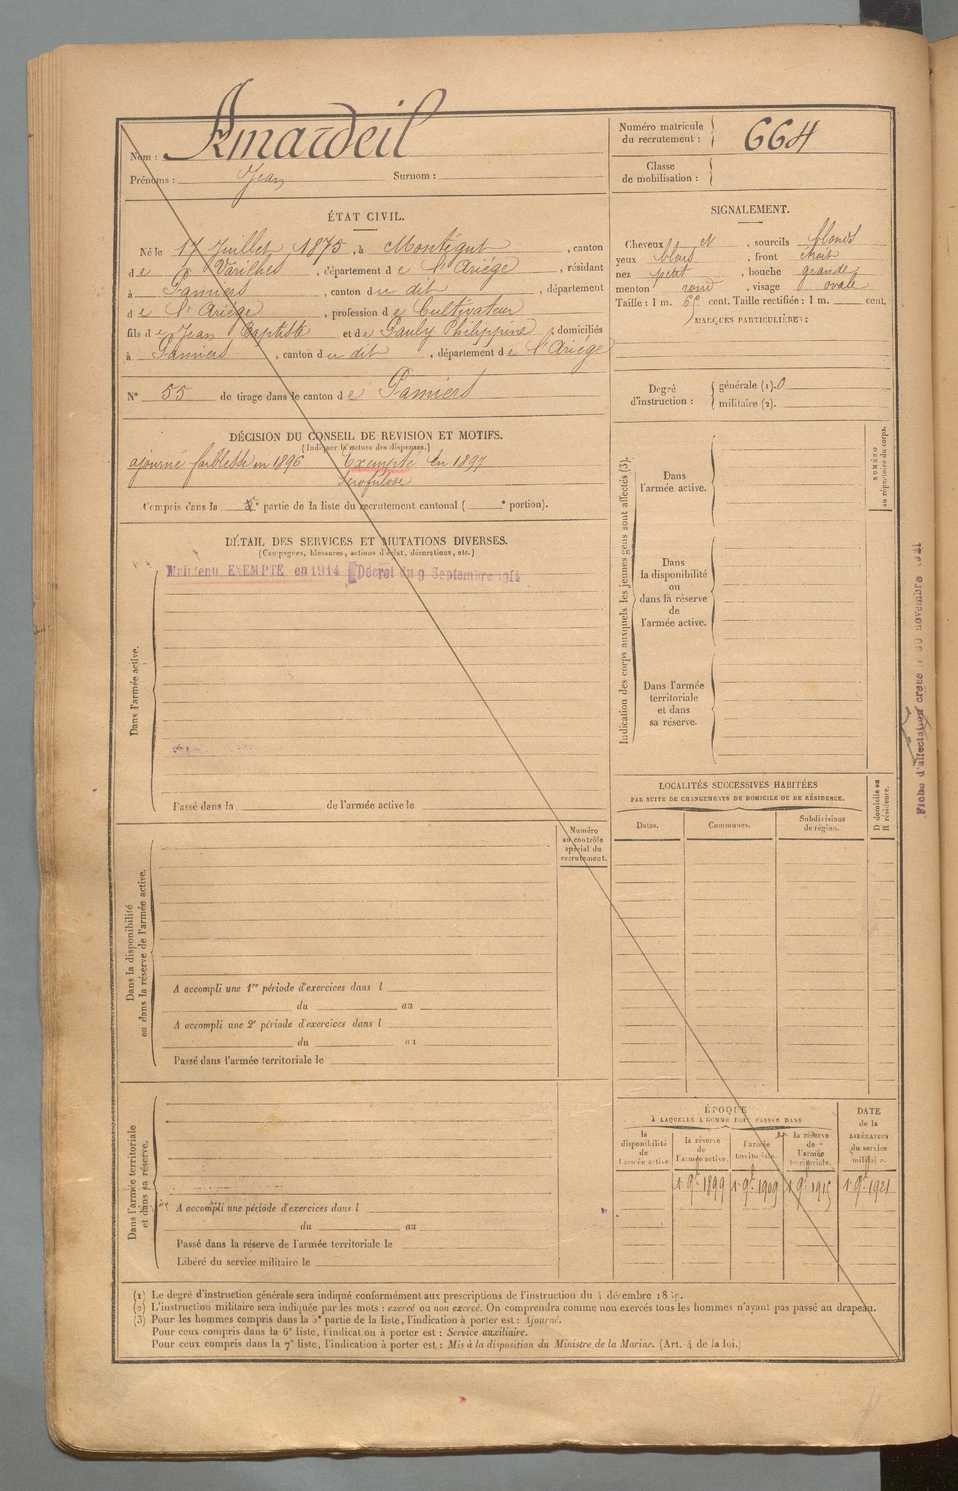 Nom : Amardeil
Prénoms : Jean Surnom :
Numéro matricule du recrutement : 664
Classe de mobilisation :
ÉTAT CIVIL.
Né le 17 Juillet 1875, à Montégut, canton
de Varilhes, département de l'Ariège, résidant
à Pamiers, canton du dit, département
de l'Ariège, profession de Cultivateur
fils de Jean Baptiste et de Pauly Philippine, domiciliés
à Pamiers, canton du dit, département de l'Ariège
N° 55 de tirage dans le canton de Pamiers
SIGNALEMENT.
Cheveux et, sourcils blonds
yeux bleus, front étroit
nez petit, bouche grande
menton rond, visage ovale
Taille : 1 m. cent. Taille rectifiée : 1 m. cent.
MARQUES PARTICULIÈRES :
Degré d'instruction : générale (1). 0
militaire (2).
DÉCISION DU CONSEIL DE REVISION ET MOTIFS.
(Indiquer la nature des dispenses.)
ajourné faiblesse en 1896 Exempté en 1897
Scrofulose
Compris dans la e partie de la liste du recrutement cantonal ( e portion).
DÉTAIL DES SERVICES ET MUTATIONS DIVERSES.
(Campagnes, blessures, actions d'éclat, décorations, etc.)
Maintenu EXEMPTÉ en 1914 Décret du 9 Septembre 1914
Dans l'armée active.
Passé dans la de l'armée active le
Indication des corps auxquels les jeunes gens sont affectés (3).
NUMÉRO au répertoire du corps.
Dans l'armée active.
Dans la disponibilité ou dans la réserve de l'armée active.
Dans l'armée territoriale et dans sa réserve.
Fiche d'affectation créée le 30 novembre 1921
LOCALITÉS SUCCESSIVES HABITÉES
PAR SUITE DE CHANGEMENTS DE DOMICILE OU DE RÉSIDENCE.
Dates. Communes. Subdivisions de région.
D domicile ou R résidence.
Numéro au contrôle spécial du recrutement.
Dans la disponibilité ou dans la réserve de l'armée active.
A accompli une 1re période d'exercices dans l
du au
A accompli une 2e période d'exercices dans l
du au
Passé dans l'armée territoriale le
Dans l'armée territoriale et dans sa réserve.
A accompli une période d'exercices dans l
du au
Passé dans la réserve de l'armée territoriale le
Libéré du service militaire le
ÉPOQUE
À LAQUELLE L'HOMME DOIT PASSER DANS
la disponibilité de l'armée active.
la réserve de l'armée active.
l'armée territoriale.
la réserve de l'armée territoriale.
DATE de la LIBÉRATION du service militaire.
1 9bre 1899 1 9bre 1909 1 9bre 1915 1 9bre 1921
(1) Le degré d'instruction générale sera indiqué conformément aux prescriptions de l'instruction du 4 décembre
(2) L'instruction militaire sera indiquée par les mots : exercé ou non exercé. On comprendra comme non exercés tous les hommes n'ayant pas passé au drapeau.
(3) Pour les hommes compris dans la 5e partie de la liste, l'indication à porter est : Ajourné.
Pour ceux compris dans la 6e liste, l'indication à porter est : Service auxiliaire.
Pour ceux compris dans la 7e liste, l'indication à porter est : Mis à la disposition du Ministre de la Marine. (Art. 4 de la loi.)